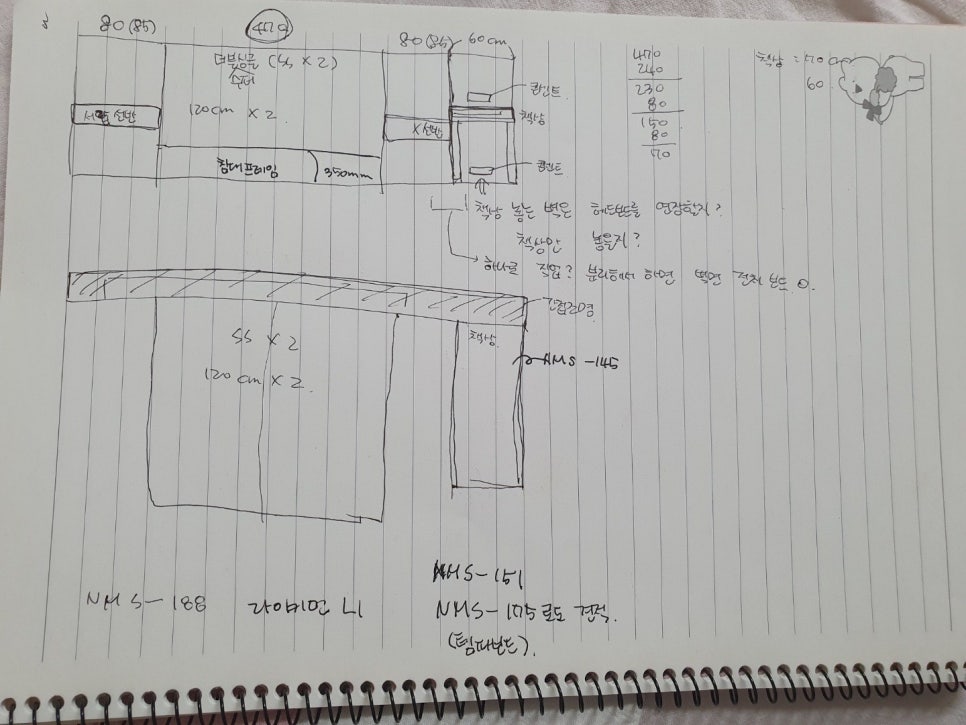 80(85)
470
80(85)
60cm
(SS x 2)
수납
120cm x 2
선반
X 선반
콘센트
책상
콘센트
침대프레임
350mm
470
240
230
80
150
80
70
책상 : 70cm
60
책상 놓는 벽은 헤드보드를 연장할지?
책상만 놓을지?
하나로 작업? 분리해서 하면 벽면 전체 보드 O.
간접조명
SS x 2
120cm x 2.
책상
HMS-145
HMS-151
NMS-188 라이비언 니
NMS-175로도 견적.
(템바보드).